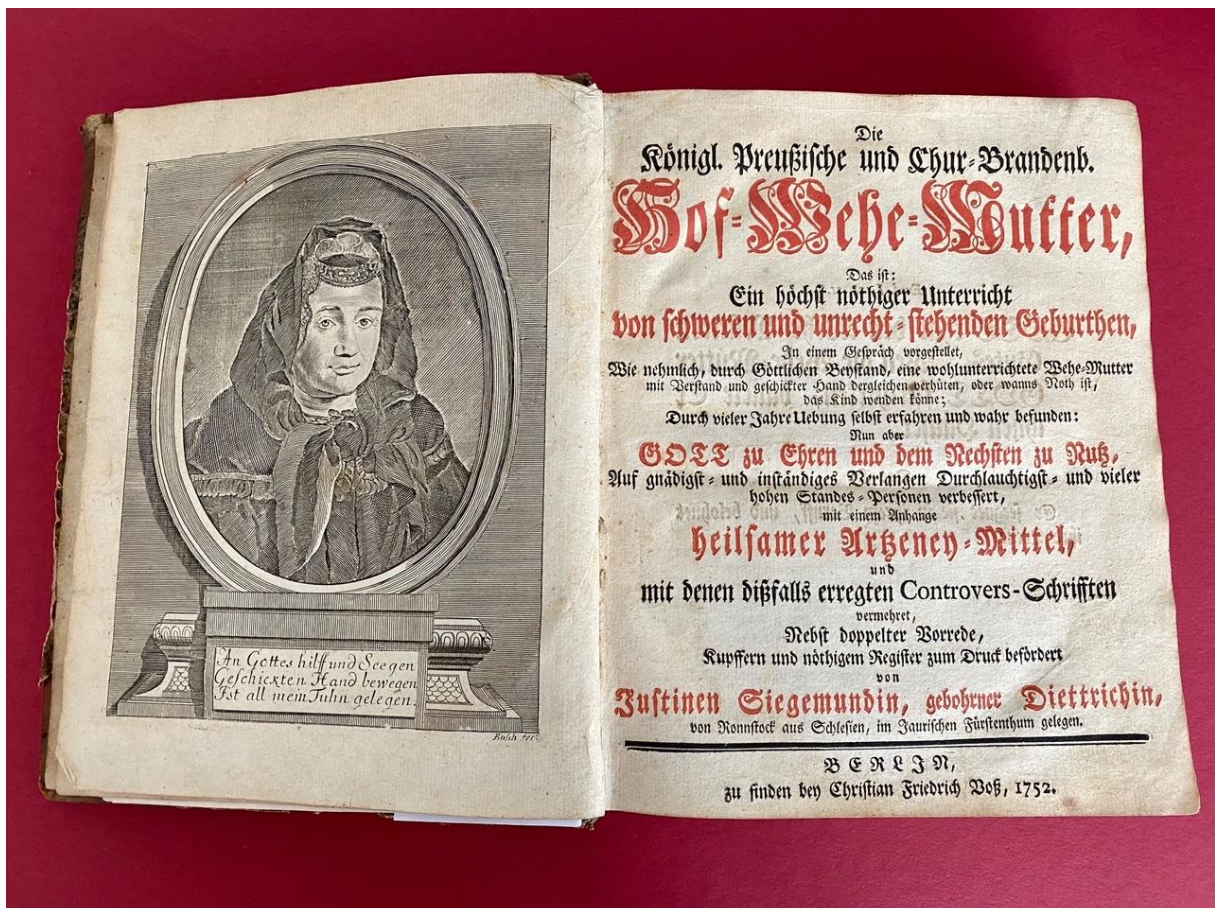 An Gottes hilff und Seegen
Geschickten Hand bewegen
Ist all mein Tuhn gelegen.
Busch fec:
Die
Königl. Preußische und Chur-Brandenb.
Hof-Wehe-Mutter,
Das ist:
Ein höchst nöthiger Unterricht
von schweren und unrecht-stehenden Geburthen,
In einem Gespräch vorgestellet,
Wie nehmlich, durch Göttlichen Beystand, eine wohlunterrichtete Wehe-Mutter
mit Verstand und geschickter Hand dergleichen verhüten, oder wanns Noth ist,
das Kind wenden könne;
Durch vieler Jahre Uebung selbst erfahren und wahr befunden:
Nun aber
GOTT zu Ehren und dem Nechsten zu Nutz,
Auf gnädigst- und inständiges Verlangen Durchlauchtigst- und vieler
hohen Standes-Personen verbessert,
mit einem Anhange
heilsamer Artzeney-Mittel,
und
mit denen dißfalls erregten Controvers-Schrifften
vermehret,
Nebst doppelter Vorrede,
Kupffern und nöthigem Register zum Druck befördert
von
Justinen Siegemundin, gebohrner Diettrichin,
von Ronnstock aus Schlesien, im Jaurischen Fürstenthum gelegen.
BERLIN,
zu finden bey Christian Friedrich Voß, 1752.